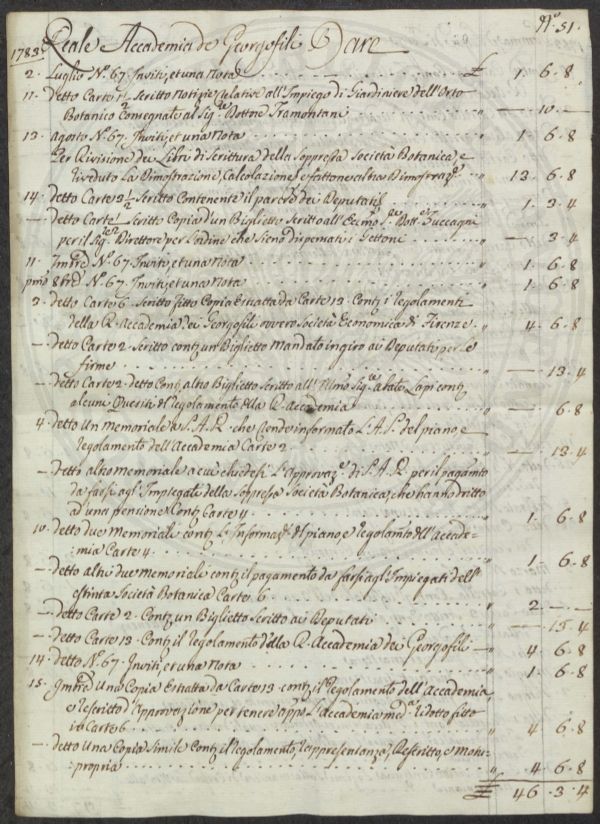 N.º 51.
1783. Reale Accademia de Georgofili Dare
2. Luglio N.º 67. Inviti, et una Nota £ 1. 6. 8
11. detto Carte 1½ Scritto Notizie relative all'Impiego di Giardiniere dell'Orto
Botanico Consegnate al Sig.re Dottore Tramontani " — 10. —
13. agosto N.º 67. Inviti, et una Nota " 1. 6. 8
Per Rivisione dei Libri di Scrittura della Soppressa Società Botanica, e
riveduto la Dimostrazione, Calcolazione e fattone altra Dimostraz.e " 13. 6. 8
14. detto Carte 3½ Scritto Contenente il parere dei Deputati " 1. 3. 4
— detto Carte 1 Scritto Copia d'un Biglietto Scritto all'Ecc.mo S.re Dott.re Zuccagni
per il Sig.re Direttore per l'adine che Sieno dispensati i Gettoni " — 3. 4
11. Sett.re N.º 67. Inviti, et una Nota " 1. 6. 8
p.mo 8bre N.º 67. Inviti, et una Nota " 1. 6. 8
3. detto Carte 6. Scritto fitto Copia Estratta da Carte 13. Cont.e i Regolamenti
della R. Accademia dei Georgofili ovvero Società Economica di Firenze " 4. 6. 8
— detto Carte 2. Scritto cont.e un Biglietto Mandato in giro ai Deputati per le
firme " — 13. 4
— detto Carte 2. detto Cont.e altro Biglietto Scritto all'Ill.mo Sig.re abate Lapi cont.e
alcuni Quesiti del Regolamento della R. Accademia " — 6. 8
4. detto un Memoriale a S. A. R. che rende informato L'A. S. del piano e
regolamento dell'Accademia Carte 2 " — 13. 4
— detto altro Memoriale a cui chiedesi L'Approvaz.e di S. A. R. per il pagam.to
da farsi agl'Impiegati della Soppressa Società Botanica, che hanno dritto
ad una pensione Cont.e Carte 4 " 1. 6. 8
10. detto due Memoriali cont.e L'Informaz.e del piano, e regolam.to dell'Accade-
:mia Carte 4 " 1. 6. 8
— detto altri due Memoriali cont.e il pagamento da farsi agl'Impiegati dell'
estinta Società Botanica Carte 6. " 2. — —
— detto Carte 2. Cont.e un Biglietto Scritto ai Deputati " — 13. 4
— detto Carte 13. Cont.e il Regolamento della R. Accademia dei Georgofili " 4. 6. 8
14. detto N.º 67. Inviti, et una Nota " 1. 6. 8
15. detto Una Copia Estratta da Carte 13. cont.e il Regolamento dell'Accademia
e Rescritto d'Approvazione per tenere app.o L'Accademia med.a ridotto fitto
in Carte 6 " 4. 6. 8
— detto Una Copia Simile Cont.e il Regolamento, rappresentanza, Rescritto, e Motu-
:proprio " 4. 6. 8
£ 46. 3. 4